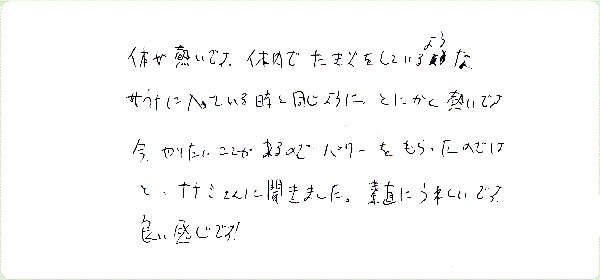 体が熱いです。体内でたき火をしているような、
サウナに入っている時と同じように、とにかく熱いです
今、やりたいことがあるのでパワーをもらったのでは
と、ナナミさんに聞きました。素直にうれしいです。
良い感じです!